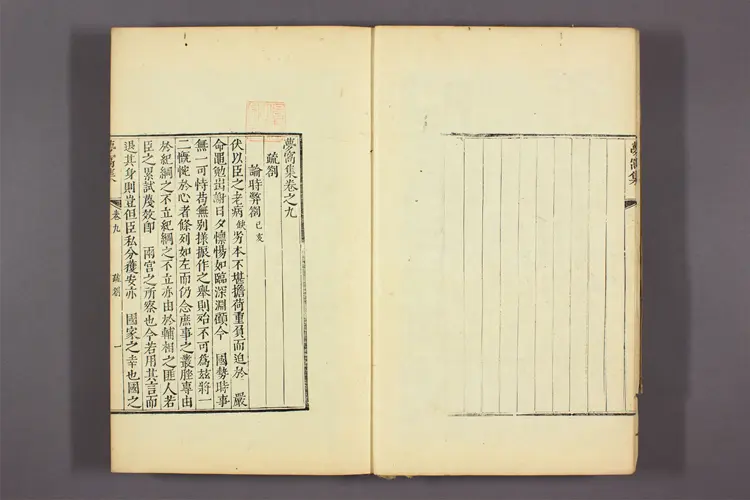 夢窩集卷之九
疏劄
論時弊劄 己亥
伏以臣之老病 缺 劣本不堪擔荷重負而迫於 嚴
命黽勉出謝日夕懍惕如臨深淵顧今 國勢時事
無一可恃苟無別樣振作之擧則殆不可爲玆將一
二慨惋於心者條列如左而仍念庶事之叢脞專由
於紀綱之不立紀綱之不立亦由於輔相之匪人若
臣之累試蔑效卽 兩宮之所察也今若用其言而
退其身則豈但臣私分獲安亦 國家之幸也國之
夢窩集
卷九
疏劄
一
夢窩集